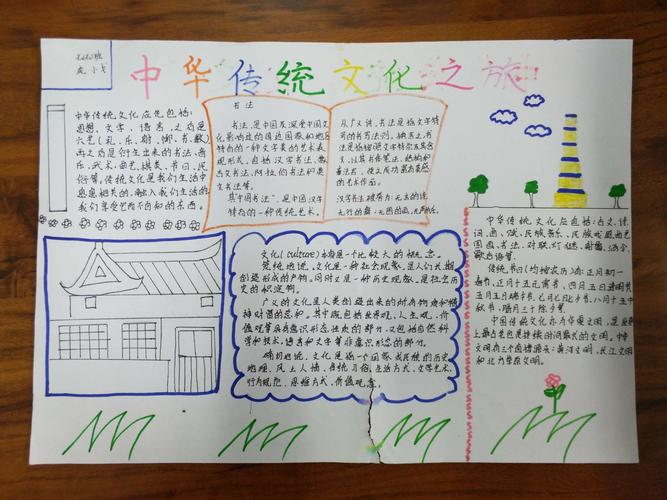 中华传统文化之旅
中华传统文化应包括:
思想、文字、语言,之后是
六艺(礼、乐、射、御、书、数)
再之后是衍生出来的书法、音
乐、武术、曲艺、棋类、节日、民
俗等。传统文化是我们生活中
息息相关的,融入我们生活的,
我们享受它而不自知的东西。
书法
书法,是中国及深受中国文
化影响过的周边国家和地区
特有的一种文字美的艺术表
现形式。包括汉字书法、蒙
古文书法、阿拉伯书法和英
文书法等。
其"中国书法",是中国汉字
特有的一种传统艺术。
从广义讲,书法是指文字符
号的书写法则。换言之,书
法是指按照文字特点及其含
义,以其书体笔法、结构和章
法写,使之成为富有美感
的艺术作品。
汉字书法被誉为:无言的诗,
无行的舞;无图的画,无声的乐。
文化(culture)是一个比较大的概念。
笼统地说,文化是一种社会现象,是人们长期
创造形成的产物。同时又是一种历史现象,是社会历
史的积淀物。
广义的文化是人类创造出来的所有物质和精
神财富的总和。其中既包括世界观、人生观、价
值观等具有意识形态性质的部分,又包括自然科
学和技术、语言和文字等非意识形态的部分。
确切地说,文化是指一个国家或民族的历史
地理、风土人情、传统习俗、生活方式、文学艺术、
行为规范、思维方式、价值观念。
中华传统文化应包括:古文、诗、
词、曲、赋、民族音乐、民族戏剧、曲艺
国画、书法、对联、灯谜、射覆、酒令、
歇后语等。
传统节日(均按农历)有:正月初一
春节、正月十五元宵节、四月五日清明节、
五月五日端午节、七月七七夕节、八月十五中
秋节、腊月三十除夕等。